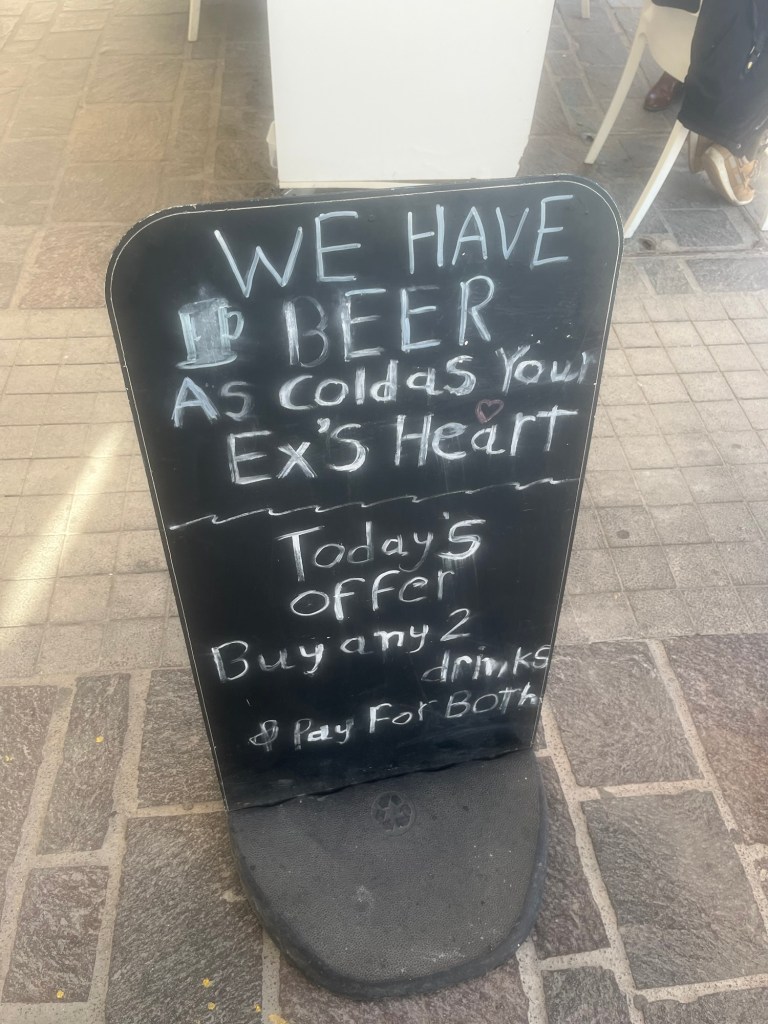 WE HAVE
BEER
As Cold as Your
Ex's Heart
Today's
offer
Buy any 2
drinks
& Pay For Both